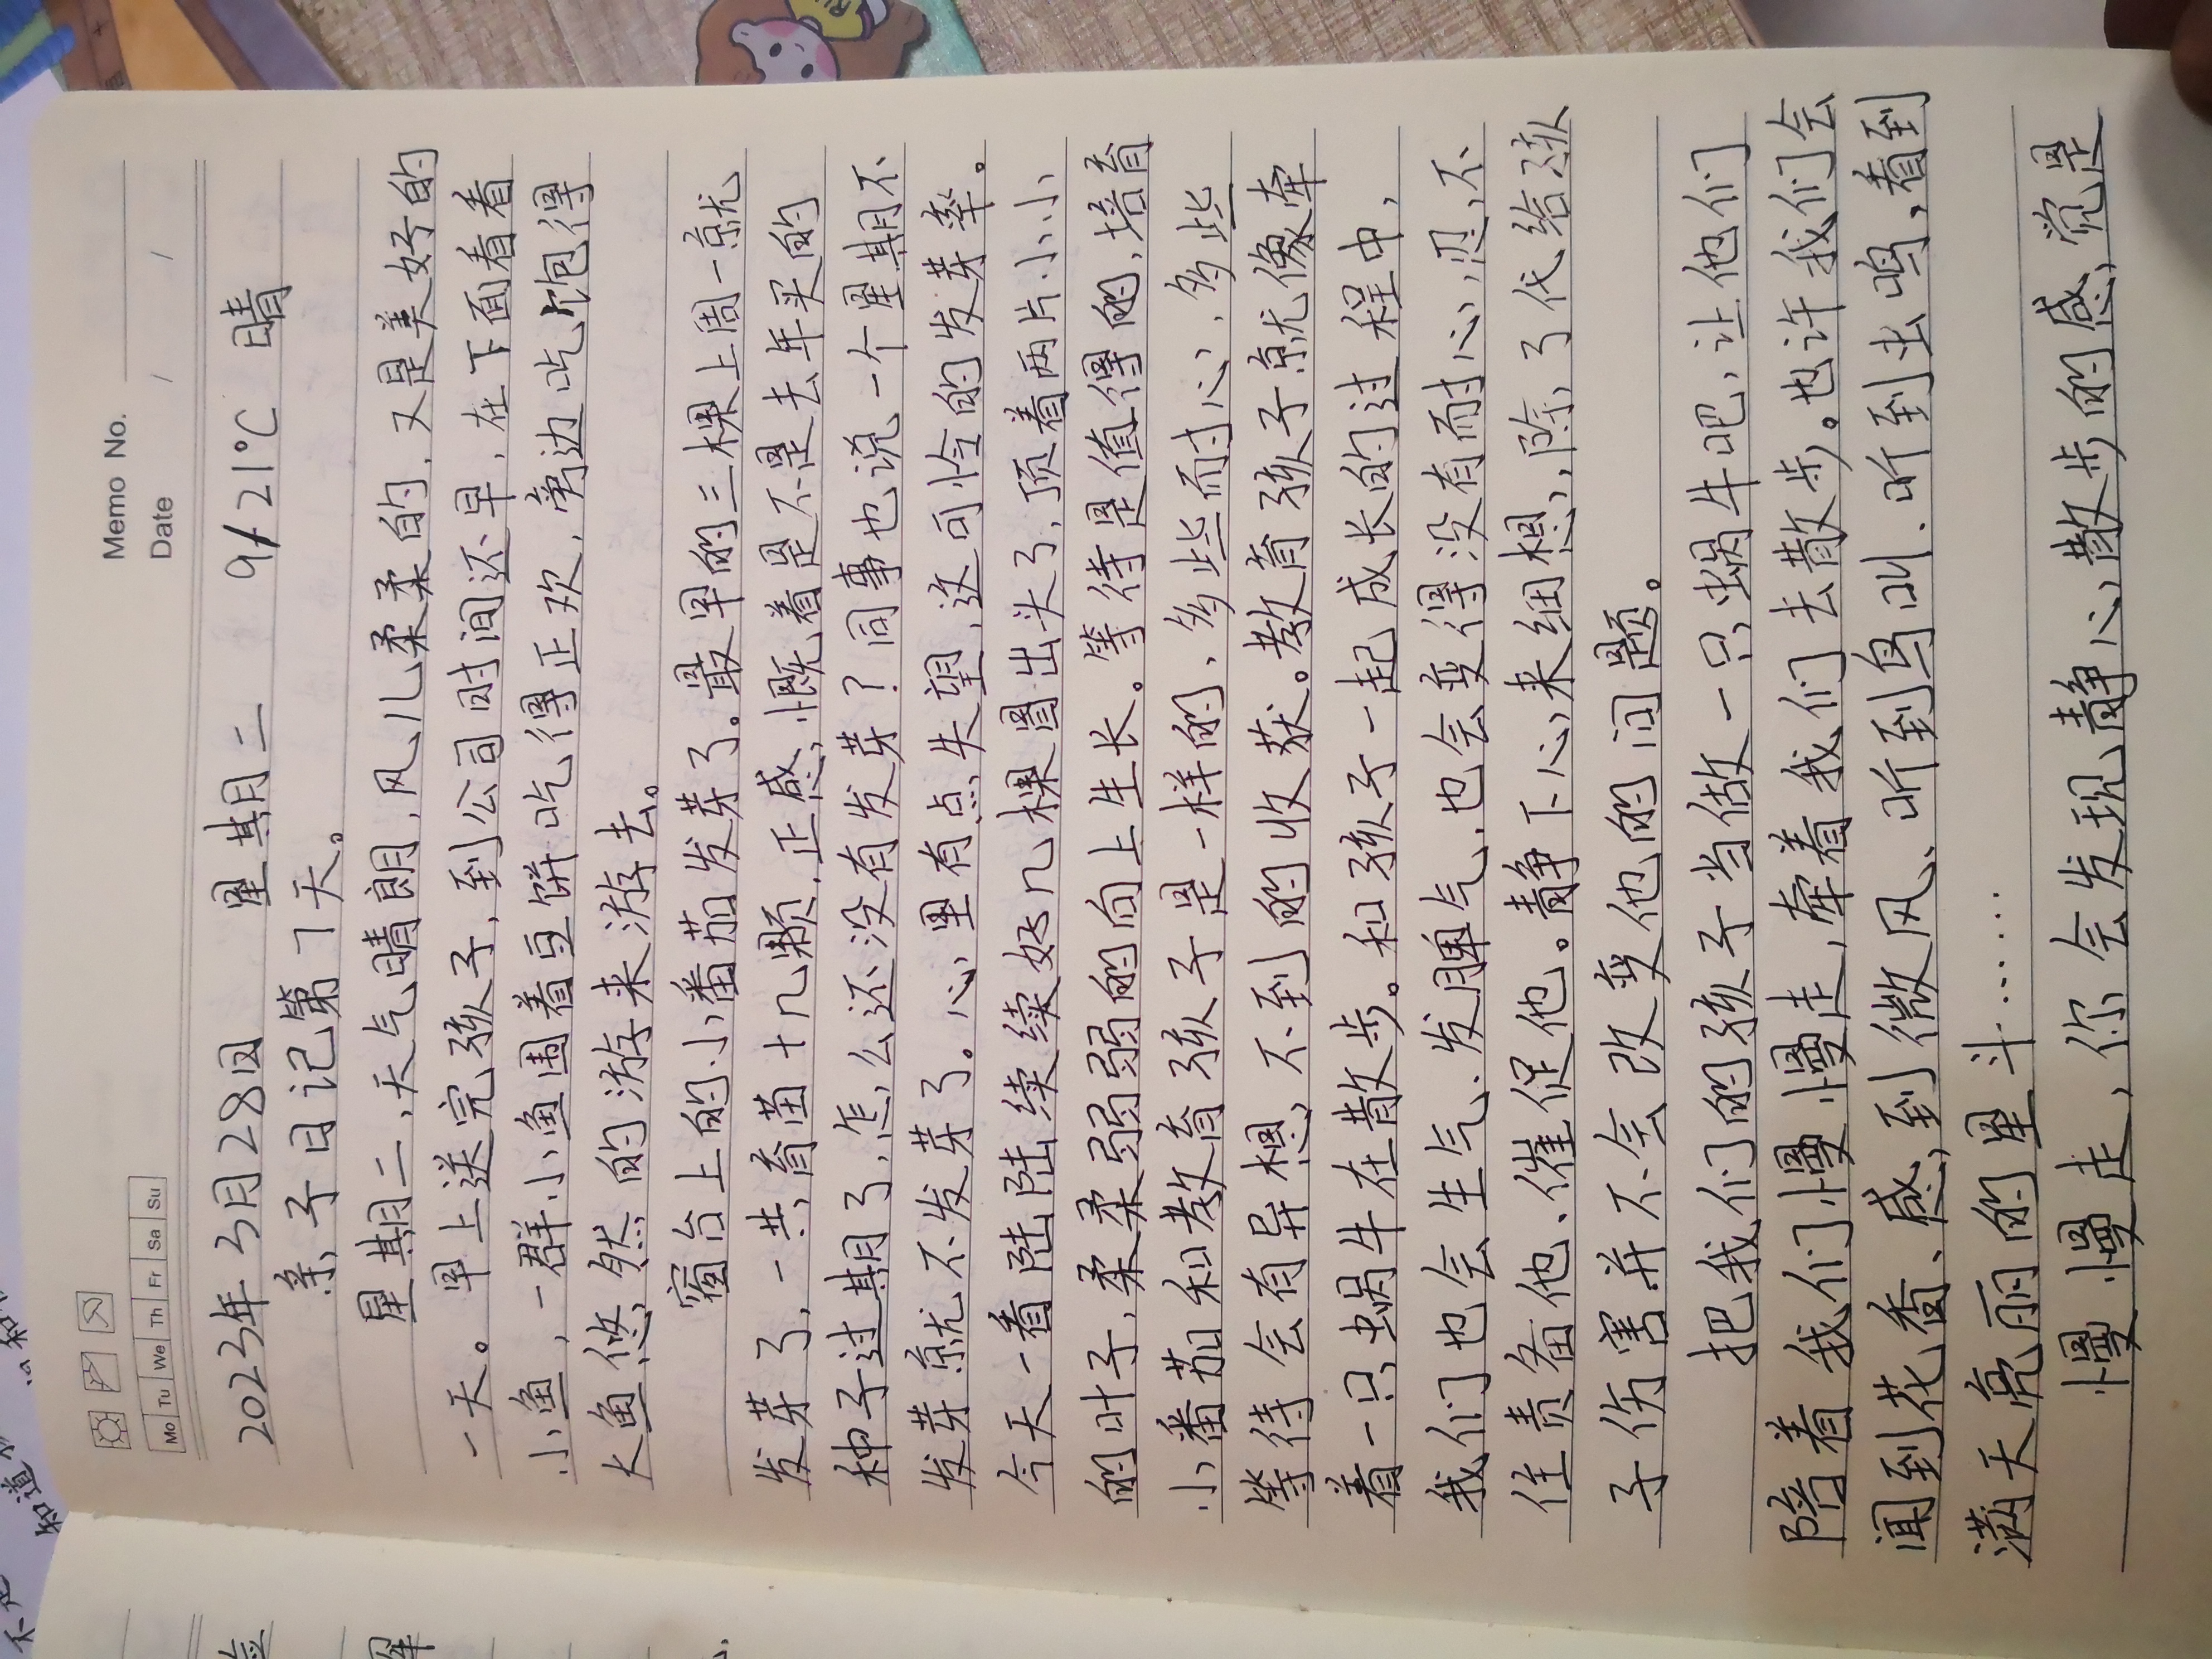 Memo No.
Mo Tu We Th Fr Sa Su
Date / /
2023年3月28日 星期二 9/21°C 晴
亲子日记第7天。
星期二,天气晴朗,风儿柔柔的,又是美好的
一天。早上送完孩子,到公司时间还早,在下面看看
小鱼,一群小鱼围着豆饼吃得正欢,旁边吃饱得
大鱼悠然的游来游去。
窗台上的小番茄发芽了。最早的三棵上周一就
发芽了,一共育苗十几颗,正感慨着是不是去年买的
种子过期了,怎么还没有发芽?同事也说一个星期不
发芽就不发芽了。心里有点失望,这可怜的发芽率。
今天一看陆陆续续好几棵冒出头了,顶着两片小小
的叶子,柔柔弱弱的向上生长。等待是值得的,培育
小番茄和教育孩子是一样的,多些耐心,多些
等待会有异想不到的收获。教育孩子就像牵
着一只蜗牛在散步。和孩子一起成长的过程中,
我们也会生气、发脾气,也会变得没有耐心,忍不
住责备他、催促他。静下心来细想,除了代给孩
子伤害并不会改变他的问题。
把我们的孩子当做一只蜗牛吧,让他们
陪着我们慢慢走,牵着我们去散步。也许我们会
闻到花香、感到微风、听到鸟叫、听到虫鸣,看到
满天亮丽的星斗……
慢慢走,你会发现静心散步的感觉是
知道